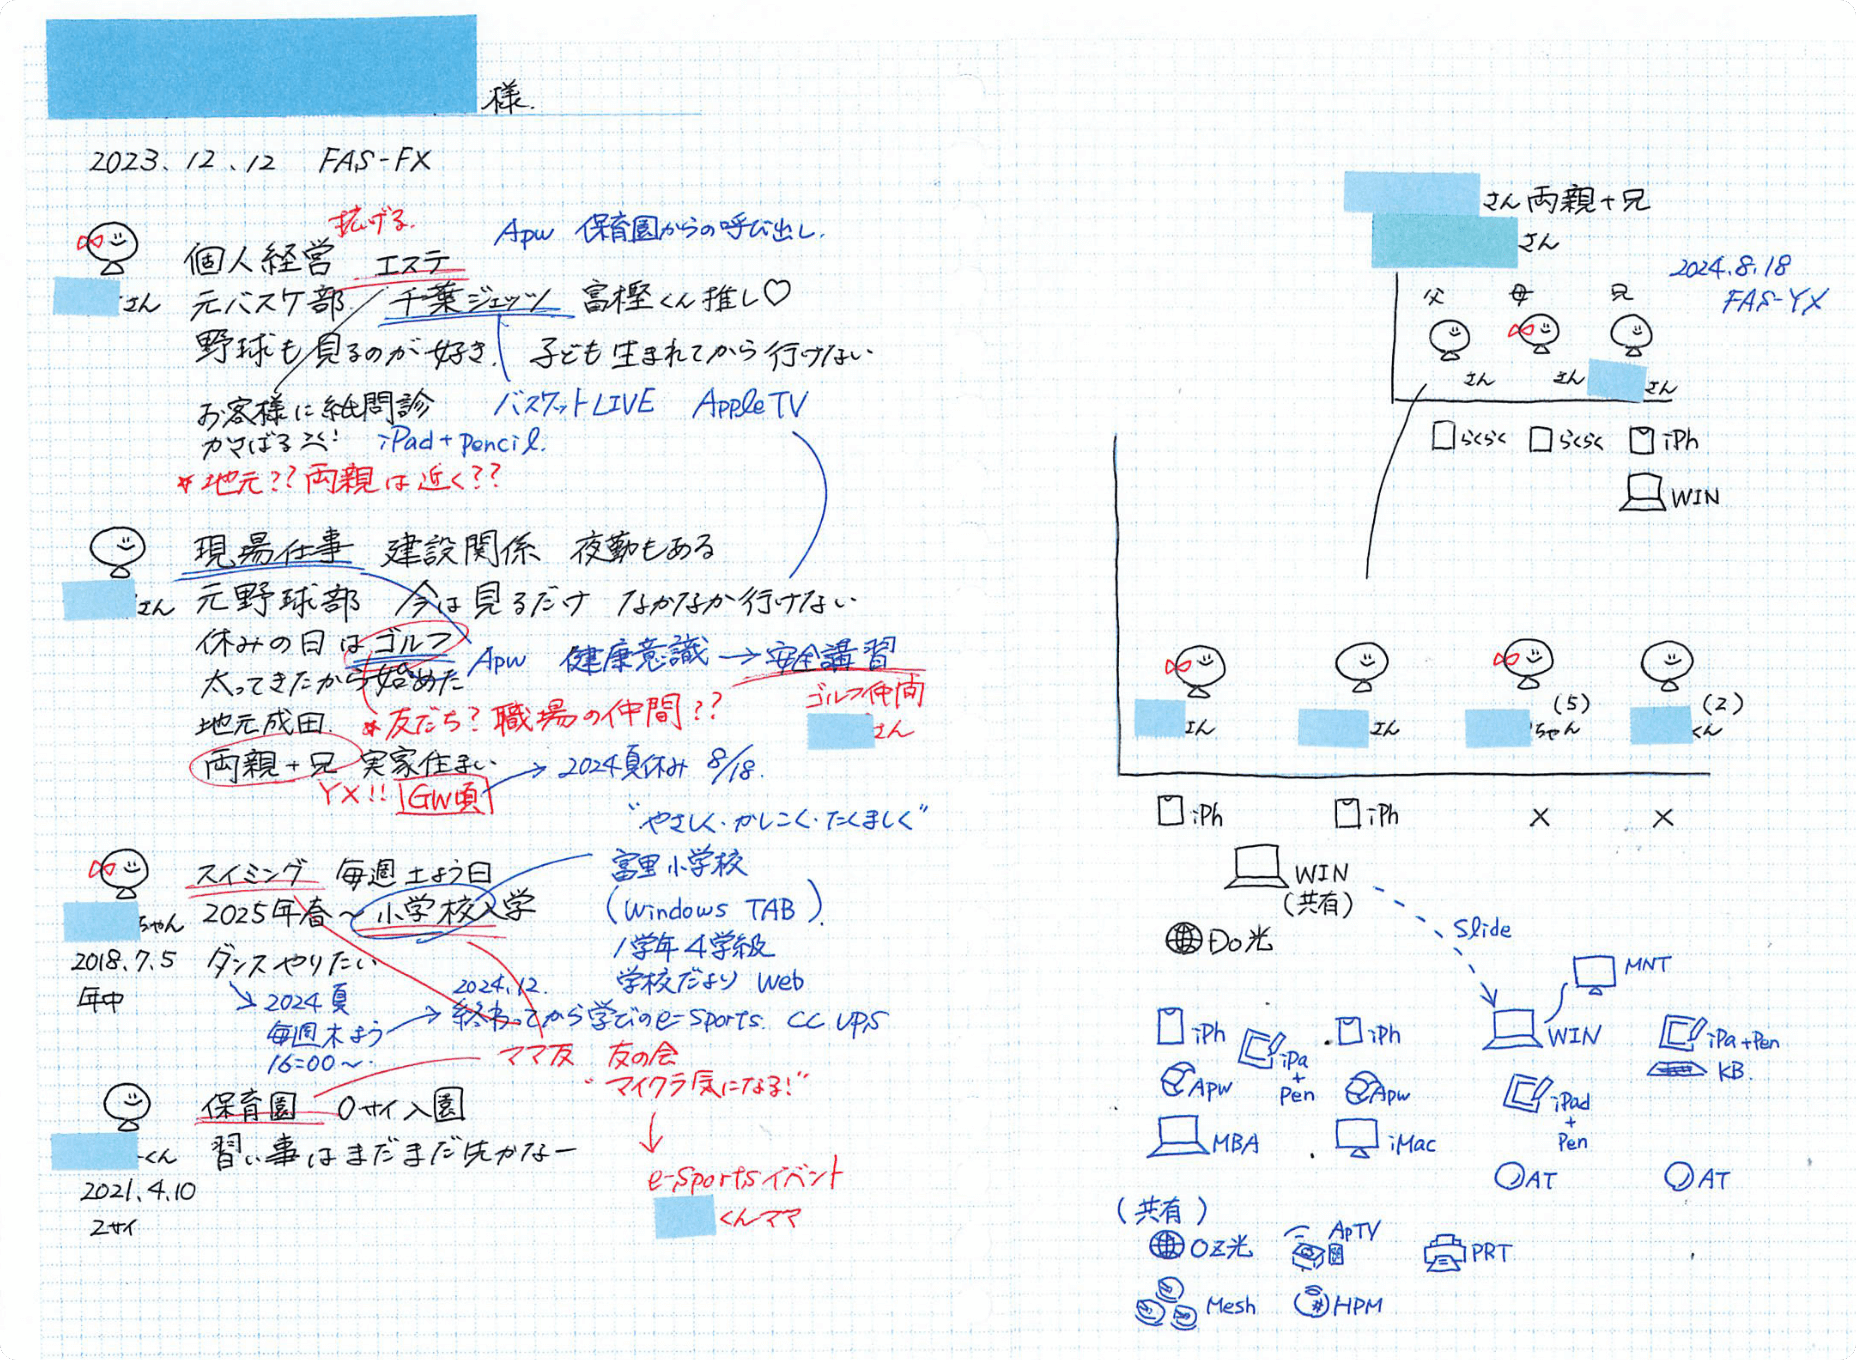 様.
2023.12.12 FAS-FX
拡げる.
Apw 保育園からの呼び出し.
個人経営 エステ
さん
元バスケ部 千葉ジェッツ 富樫くん推し♡
野球も見るのが好き. 子ども生まれてから行けない
お客様に紙問診
かさばる
バスケットLIVE AppleTV
iPad+pencil.
*地元??両親は近く??
現場仕事 建設関係 夜勤もある
さん
元野球部 今は見るだけ なかなか行けない
休みの日はゴルフ
太ってきたから始めた
Apw 健康意識→安全講習
ゴルフ仲間
さん
地元成田.
*友だち?職場の仲間??
両親+兄 実家住まい
YX!! GW頃
→2024夏休み 8/18.
"やさしく・かしこく・たくましく"
スイミング 毎週土よう日
ちゃん
2025年春~小学校入学
富里小学校
(Windows TAB)
1学年4学級
学校だより Web
2018.7.5
年中
ダンスやりたい
2024夏
毎週木よう
16:00~.
2024.12.
→終わってから学びのe-Sports. CC UPS
ママ友 友の会
"マイクラ気になる!"
保育園 0サイ入園
くん
習い事はまだまだ先かなー
2021.4.10
2サイ
e-Sportsイベント
くんママ
さん両親+兄
さん
2024.8.18
FAS-YX
父 母 兄
さん さん さん
らくらく らくらく iPh
WIN
(5) (2)
さん さん ちゃん くん
iPh iPh × ×
WIN
(共有)
Slide
Do光
MNT
iPh iPa + Pen iPh WIN iPa+Pen
KB.
Apw Apw iPad + Pen
MBA iMac
AT AT
(共有)
OZ光 ApTV PRT
Mesh HPM